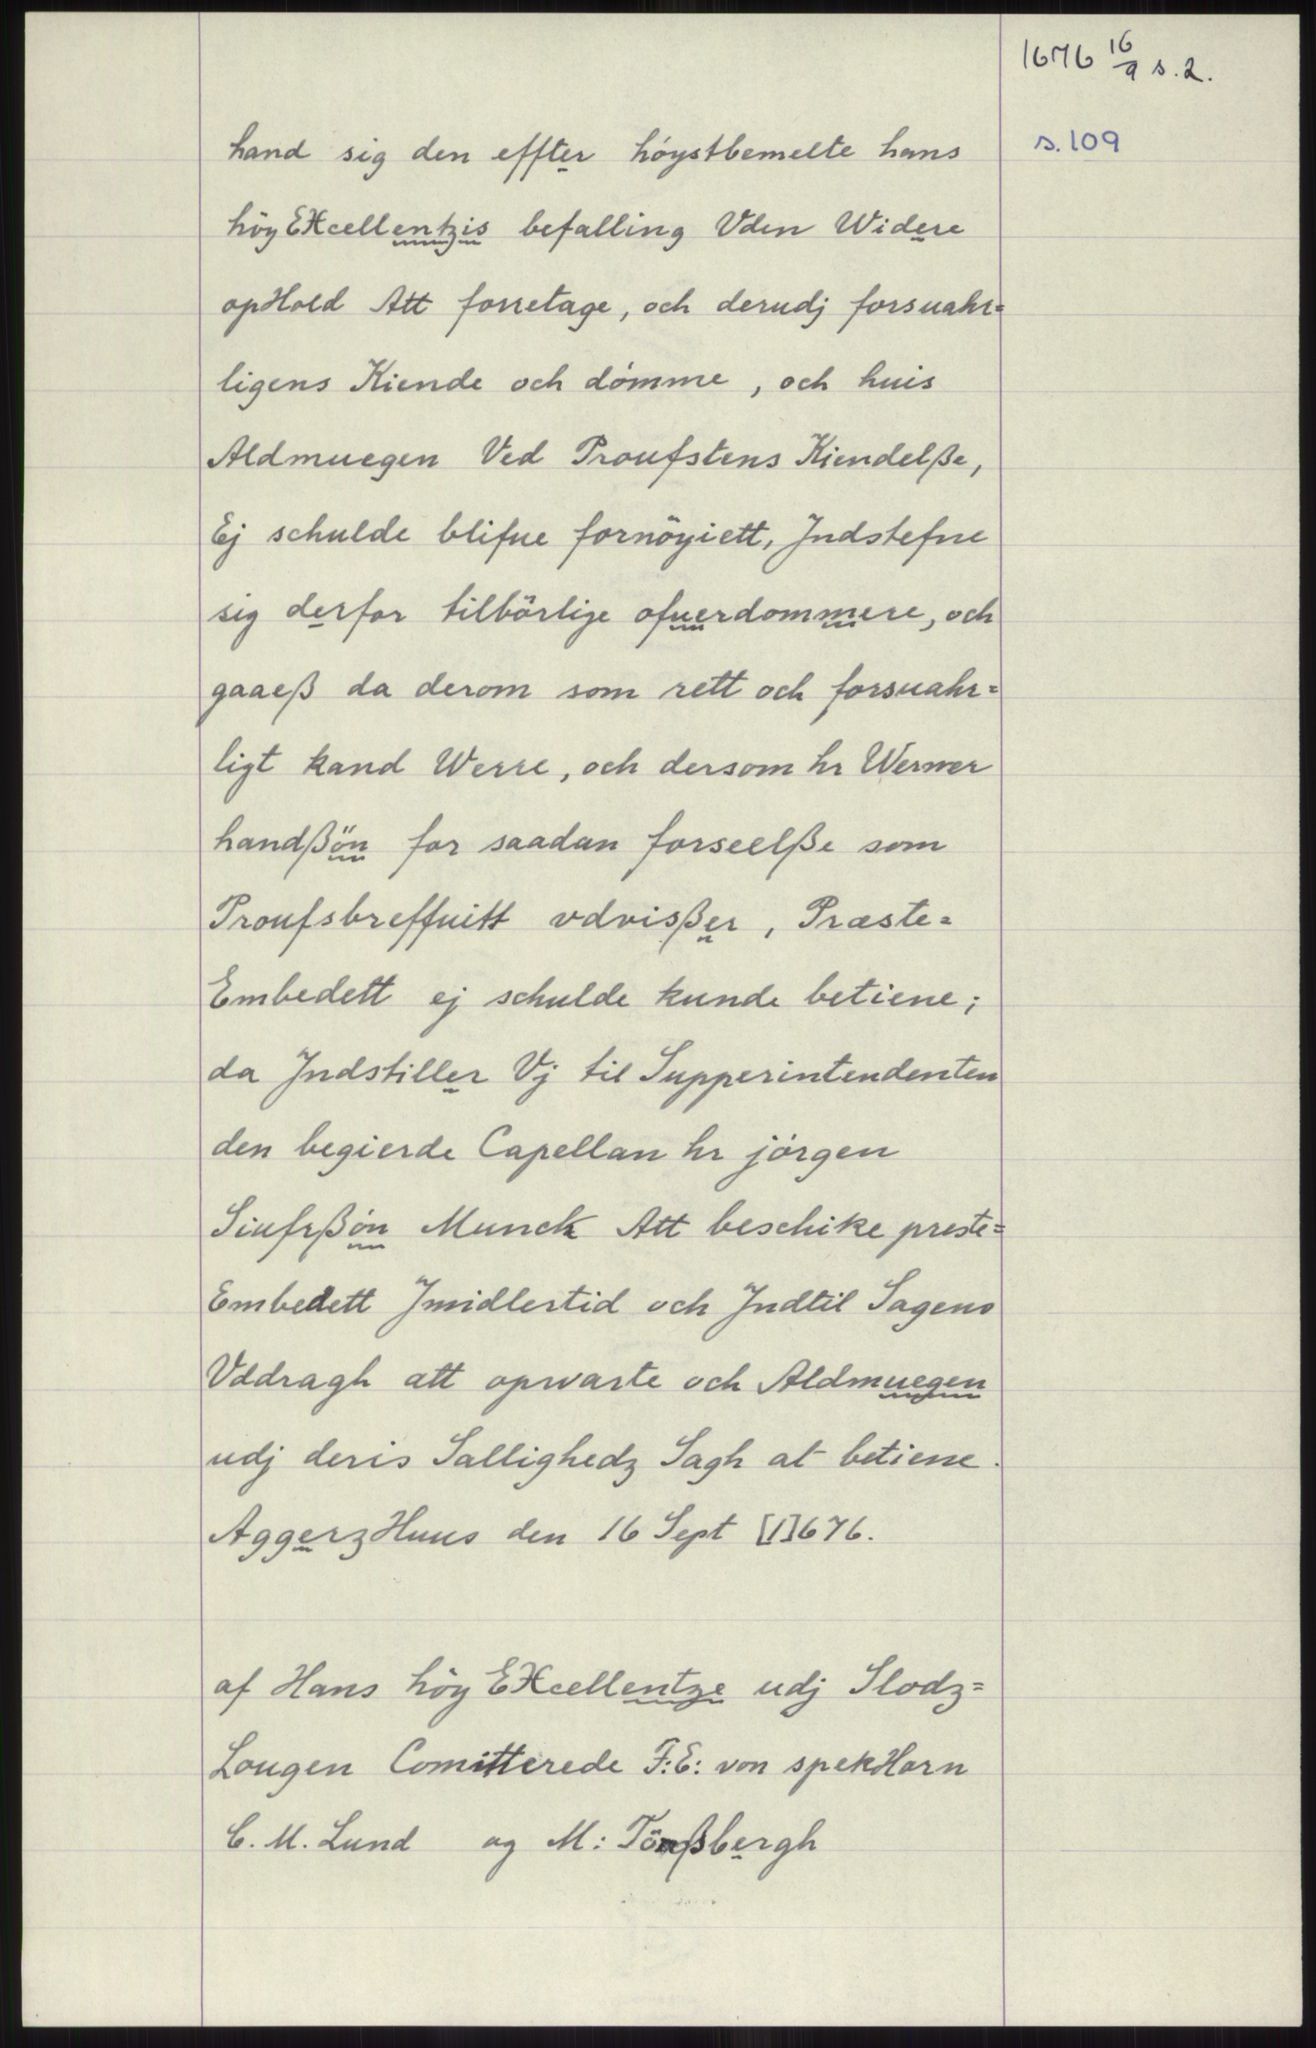 1676 16/9 s. 2.
s. 109
hand sig den effter höystbemelte hans
höy EXcellentzis befalling Vden Widere
opHold Att forretage, och derudj forsuahr=
ligens Kiende och dömme, och huis
Aldmuegen Ved Proufstens Kiendelße,
Ej schulde blifue fornöyiett, Jndstefne
sig derfor tilbörlige ofuerdommere, och
gaaeß da derom som rett och forsuahr=
ligt kand Werre, och dersom hr Werner
handßön for saadan forseelße som
Proufsbreffuitt vdvißer, Præste=
Embedett ej schulde kunde betiene;
da Jndstiller Vj til Supperintendenten
den begierde Capellan hr jörgen
Siufrßön Munck Att beschike preste=
Embedett Jmidlertid och Jndtil Sagens
Vddragh att opvarte och Aldmuegen
udj deris Sallighedz Sagh at betiene.
AggerzHuus den 16 Sept [1]676.
af Hans höy EXcellentze udj Slodz=
Lougen Comitterede F: E: von spekHorn
C. M. Lund og M: Tönßbergh